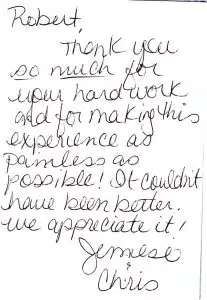 Robert,
Thank you
so much for
your hard work
and for making this
experience as
painless as
possible! It couldn't
have been better.
We appreciate it!
Jenniese
&
Chris